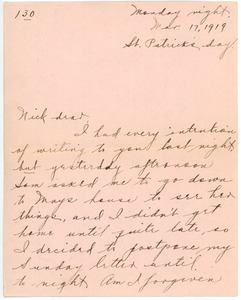 130
Monday night.
Mar. 17, 1919
St. Patricks day
Nick dear:
I had every intention
of writing to you last night
but yesterday afternoon
Sam asked me to go down
to Mays house to see her
things, and I didn't get
home until quite late, so
I decided to postpone my
Sunday letter until
to night. Am I forgiven